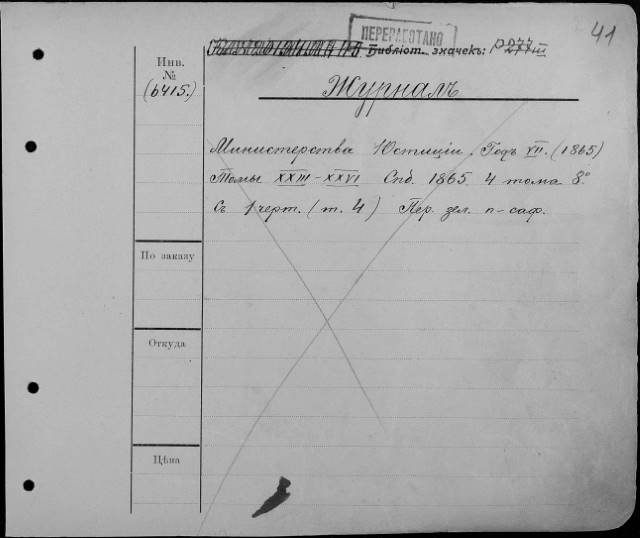 41
ПЕРЕРАБОТАНО
Библіот. значекъ:
Инв.
№
(6415.)
Журналъ
Министерства Юстиціи. Годъ VII. (1865)
Томы XXIII–XXVI Спб. 1865 4 тома 8°
Съ 1 черт. (т. 4) Пер. зел. п-саф.
По заказу
Откуда
Цѣна